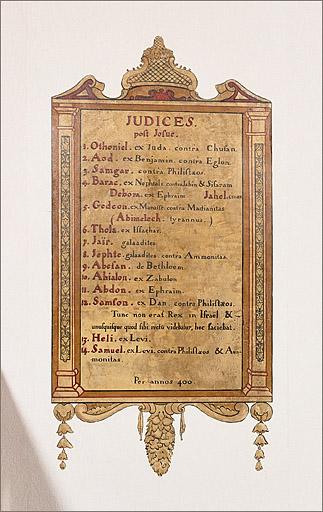 JUDICES.
post Josue.
1. Othoniel. ex Juda. contra Chusan.
2. Aod. ex Benjamin. contra Eglon.
3. Samgar. contra Philistæos.
4. Barac. ex Nephtali contra Jabin & Sisaram
Debora. ex Ephraim. Jahel.
5. Gedeon. ex Manasse. contra Madianitas
(Abimelech. tyrannus.)
6. Thola. ex Issachar.
7. Jair. galaadites.
8. Jephte. galaadites. contra Ammonitas.
9. Abesan. de Bethleem.
10. Ahialon. ex Zabulon.
11. Abdon. ex Ephraim.
12. Samson. ex Dan. contra Philistæos.
Tunc non erat Rex in Israel &
unusquisque quod sibi rectu videbatur, hoc faciebat.
13. Heli. ex Levi.
14. Samuel. ex Levi. contra Philistæos & Am-
monitas.
Per annos 400.